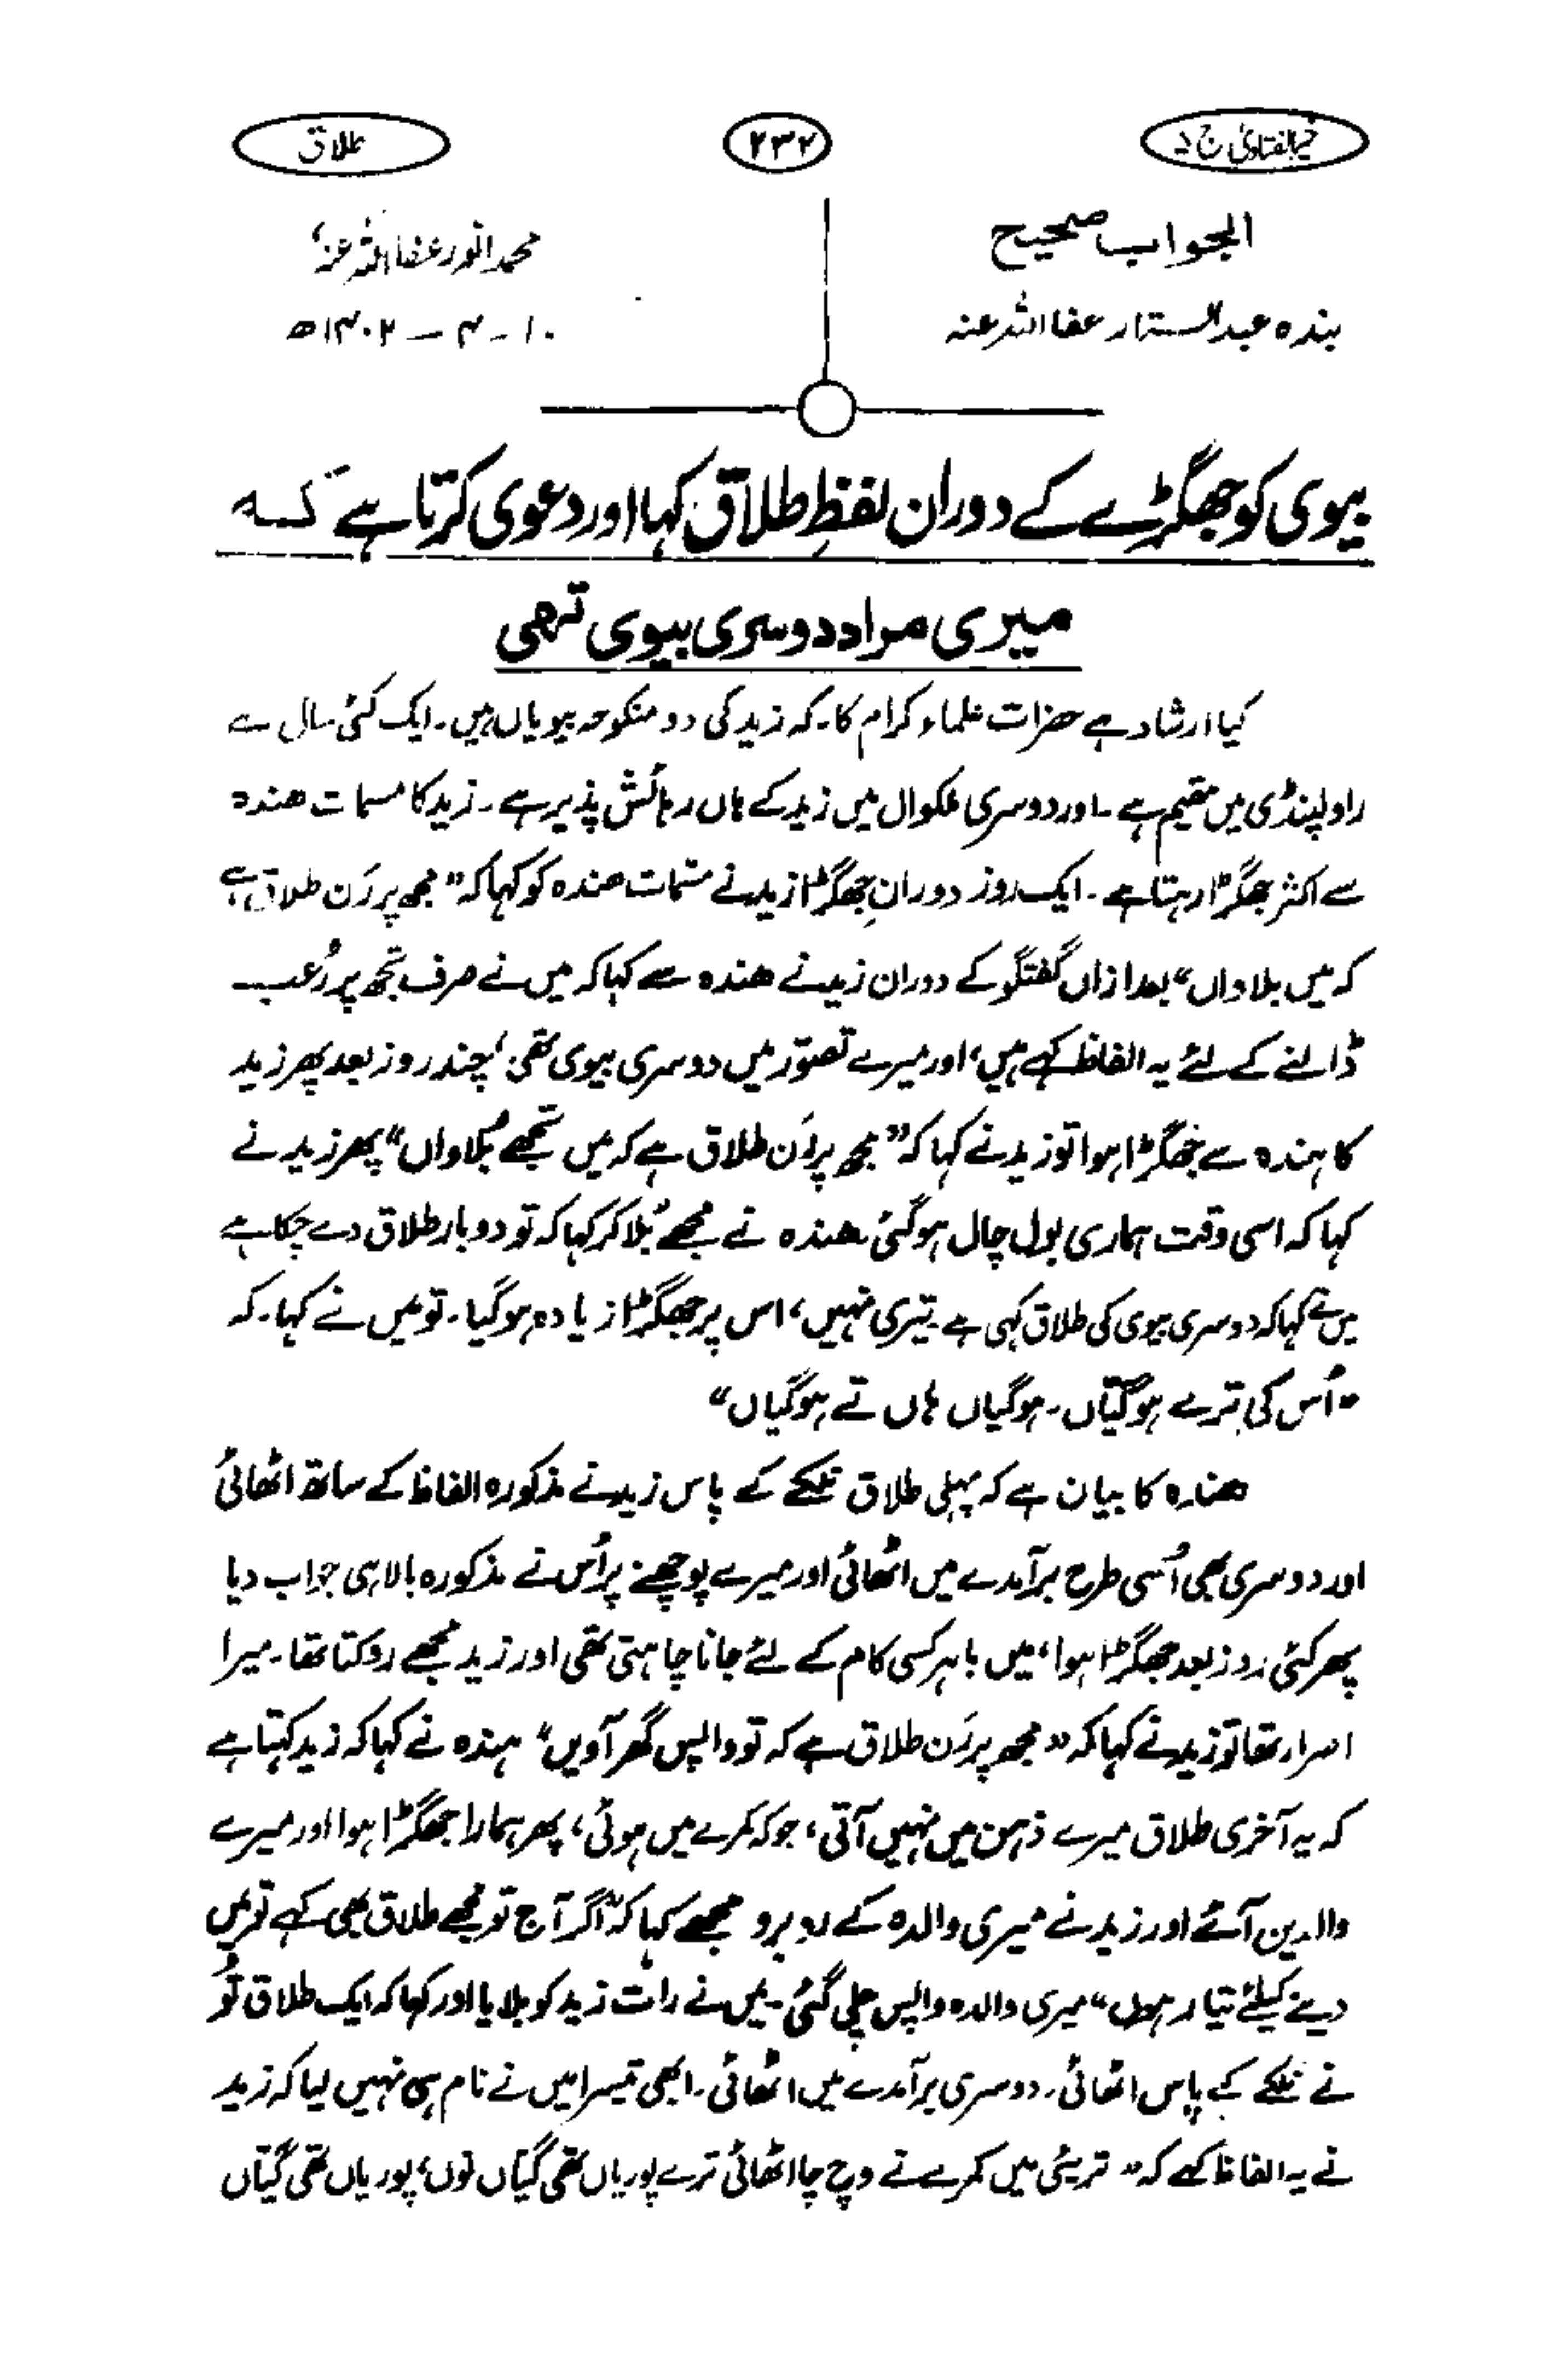 خیر الفتاویٰ ج ۵
۲۳۲
طلاق
الجواب صحیح
محمد انور عفا اللہ عنہ
بندہ عبدالستار عفا اللہ عنہ
۱۰ - ۴ - ۱۴۰۲ھ
بیوی کو جھگڑے کے دوران لفظِ طلاق کہا اور دعوی کرتا ہے کہ
میری مراد دوسری بیوی تھی
کیا ارشاد ہے حضرات علماء کرام کا۔ کہ زید کی دو منکوحہ بیویاں ہیں۔ ایک کئی سال سے
راولپنڈی میں مقیم ہے۔ اور دوسری ملکوال میں زید کے ہاں رہائش پذیر ہے۔ زید کا مسمات ھندہ
سے اکثر جھگڑا رہتا ہے۔ ایک روز دورانِ جھگڑا زید نے مسمات ھندہ کو کہا کہ ”مجھ پر رَن طلاق ہے
کہ میں بلاواں“ بعد ازاں گفتگو کے دوران زید نے ھندہ سے کہا کہ میں نے صرف تجھ پر رُعب
ڈالنے کے لئے یہ الفاظ کہے ہیں، اور میرے تصوّر میں دوسری بیوی تھی، چند روز بعد پھر زید
کا ہندہ سے جھگڑا ہوا تو زید نے کہا کہ ”مجھ پر رَن طلاق ہے کہ میں تجھے بُلاواں“ پھر زید نے
کہا کہ اسی وقت ہماری بول چال ہو گئی۔ ھندہ نے مجھے بُلا کر کہا کہ تو دو بار طلاق دے چکا ہے
میں نے کہا کہ دوسری بیوی کی طلاق کہی ہے۔ تیری نہیں، اس پر جھگڑا زیادہ ہو گیا۔ تو میں نے کہا۔ کہ
”اُس کی ترے ہوگیّاں۔ ہوگیاں ہاں تے ہوگیاں“
ھندہ کا بیان ہے کہ پہلی طلاق نلکے کے پاس زید نے مذکورہ الفاظ کے ساتھ اٹھائی
اور دوسری بھی اُسی طرح برآمدے میں اٹھائی اور میرے پوچھنے پر اُس نے مذکورہ بالا ہی جواب دیا
پھر کئی روز بعد جھگڑا ہوا، میں باہر کسی کام کے لئے جانا چاہتی تھی اور زید مجھے روکتا تھا۔ میرا
اصرار تھا تو زید نے کہا کہ ”مجھ پر رَن طلاق ہے کہ تو واپس گھر آویں“ ہندہ نے کہا کہ زید کہتا ہے
کہ یہ آخری طلاق میرے ذہن میں نہیں آتی، جو کہ کمرے میں ہوئی، پھر ہمارا جھگڑا ہوا اور میرے
والدین آئے اور زید نے میری والدہ کے روبرو مجھے کہا کہ ”اگر آج تو مجھے طلاق بھی کہے تو میں
دینے کیلئے تیار ہوں“ میری والدہ واپس چلی گئی۔ میں نے رات زید کو بلایا اور کہا کہ ایک طلاق تُو
نے نلکے کے پاس اٹھائی۔ دوسری برآمدے میں اٹھائی۔ ابھی تیسرا میں نے نام ہی نہیں لیا کہ زید
نے یہ الفاظ کہے کہ ”تریئی میں کمرے تے وچ چا اٹھائی ترے پوریاں تھی گیّاں نوں، پوریاں تھی گیّاں